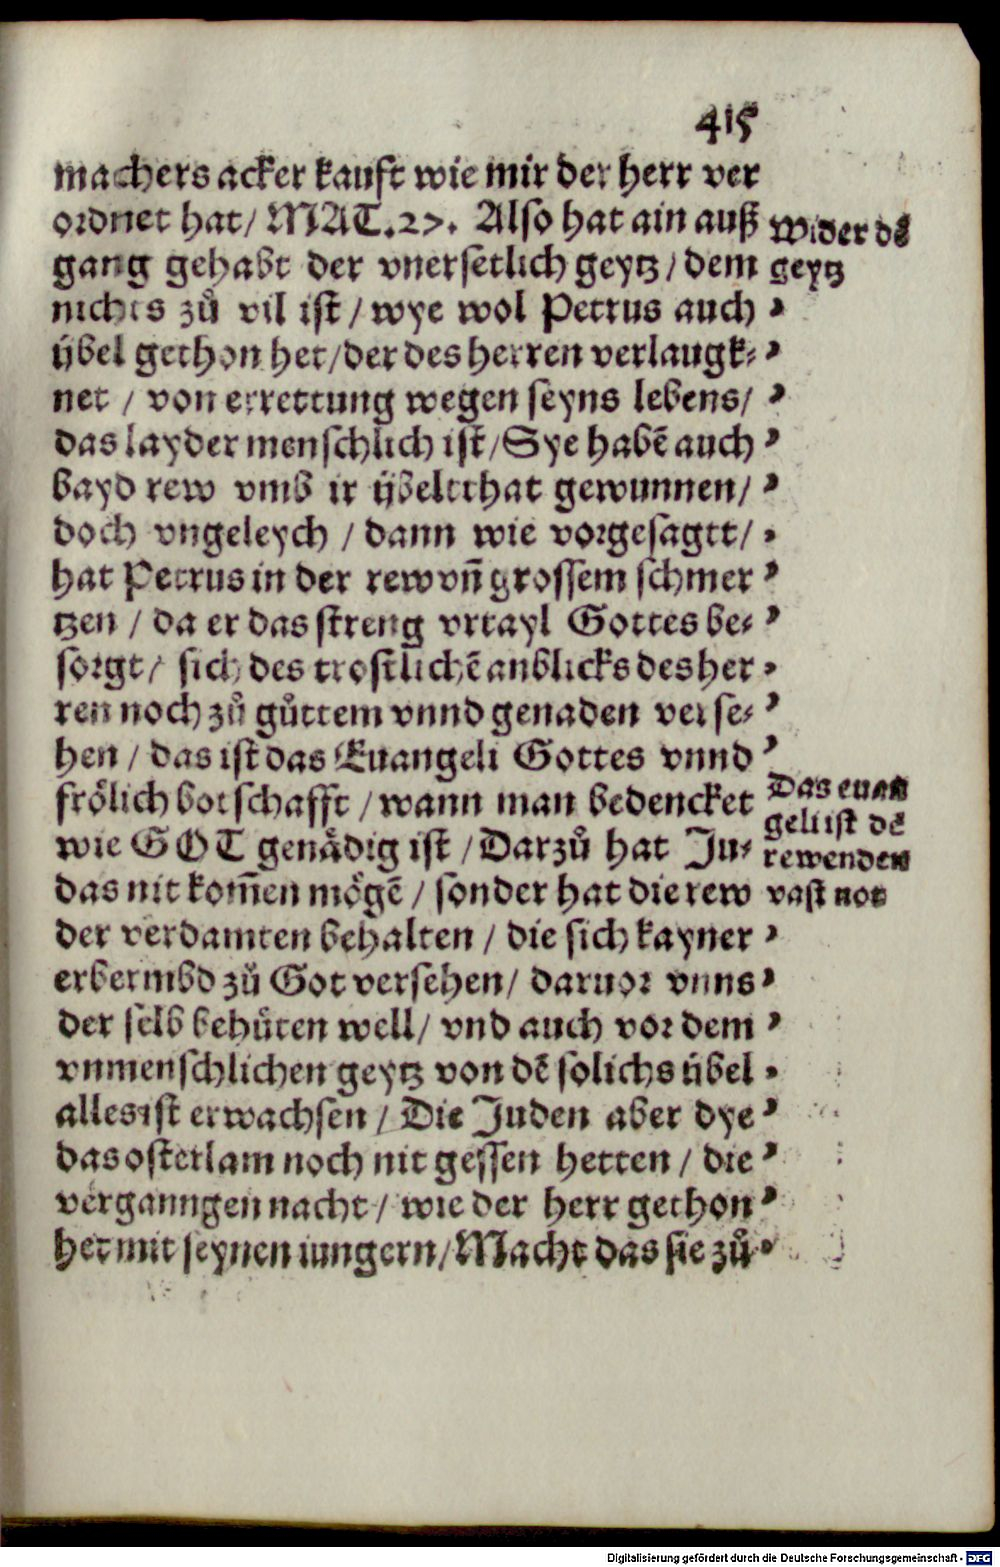 415
machers acker kauft wie mir der herr ver
ordnet hat/ MAT.27. Also hat ain auß
gang gehabt der vnersetlich geytz/ dem
nichts zů vil ist/ wye wol Petrus auch
ÿbel gethon het/der des herren verlaugk⸗
net / von errettung wegen seyns lebens/
das layder menschlich ist/Sye habē auch
bayd rew vmb ir ÿbeltthat gewunnen/
doch vngeleych / dann wie vorgesagtt/
hat Petrus in der rew vñ grossem schmer
tzen / da er das streng vrtayl Gottes be⸗
sorgt/ sich des trostlichē anblicks des her
ren noch zů gůttem vnnd genaden verse⸗
hen / das ist das Euangeli Gottes vnnd
frölich botschafft / wann man bedencket
wie GOT genådig ist /Darzů hat Ju⸗
das nit kom̄en mögē / sonder hat die rew
der verdamten behalten / die sich kayner
erbermbd zů Got versehen/ daruor vnns
der selb behůten well/ vnd auch vor dem
vnmenschlichen geytz von dē solichs übel
alles ist erwachsen / Die Juden aber dye
das osterlam noch nit gessen hetten / die
verganngen nacht / wie der herr gethon
het mit seynen iungern/Macht das sie zů
Wider dē
geytz
Das euan
geli ist dē
rewenden
vast not
Digitalisierung gefördert durch die Deutsche Forschungsgemeinschaft - DFG